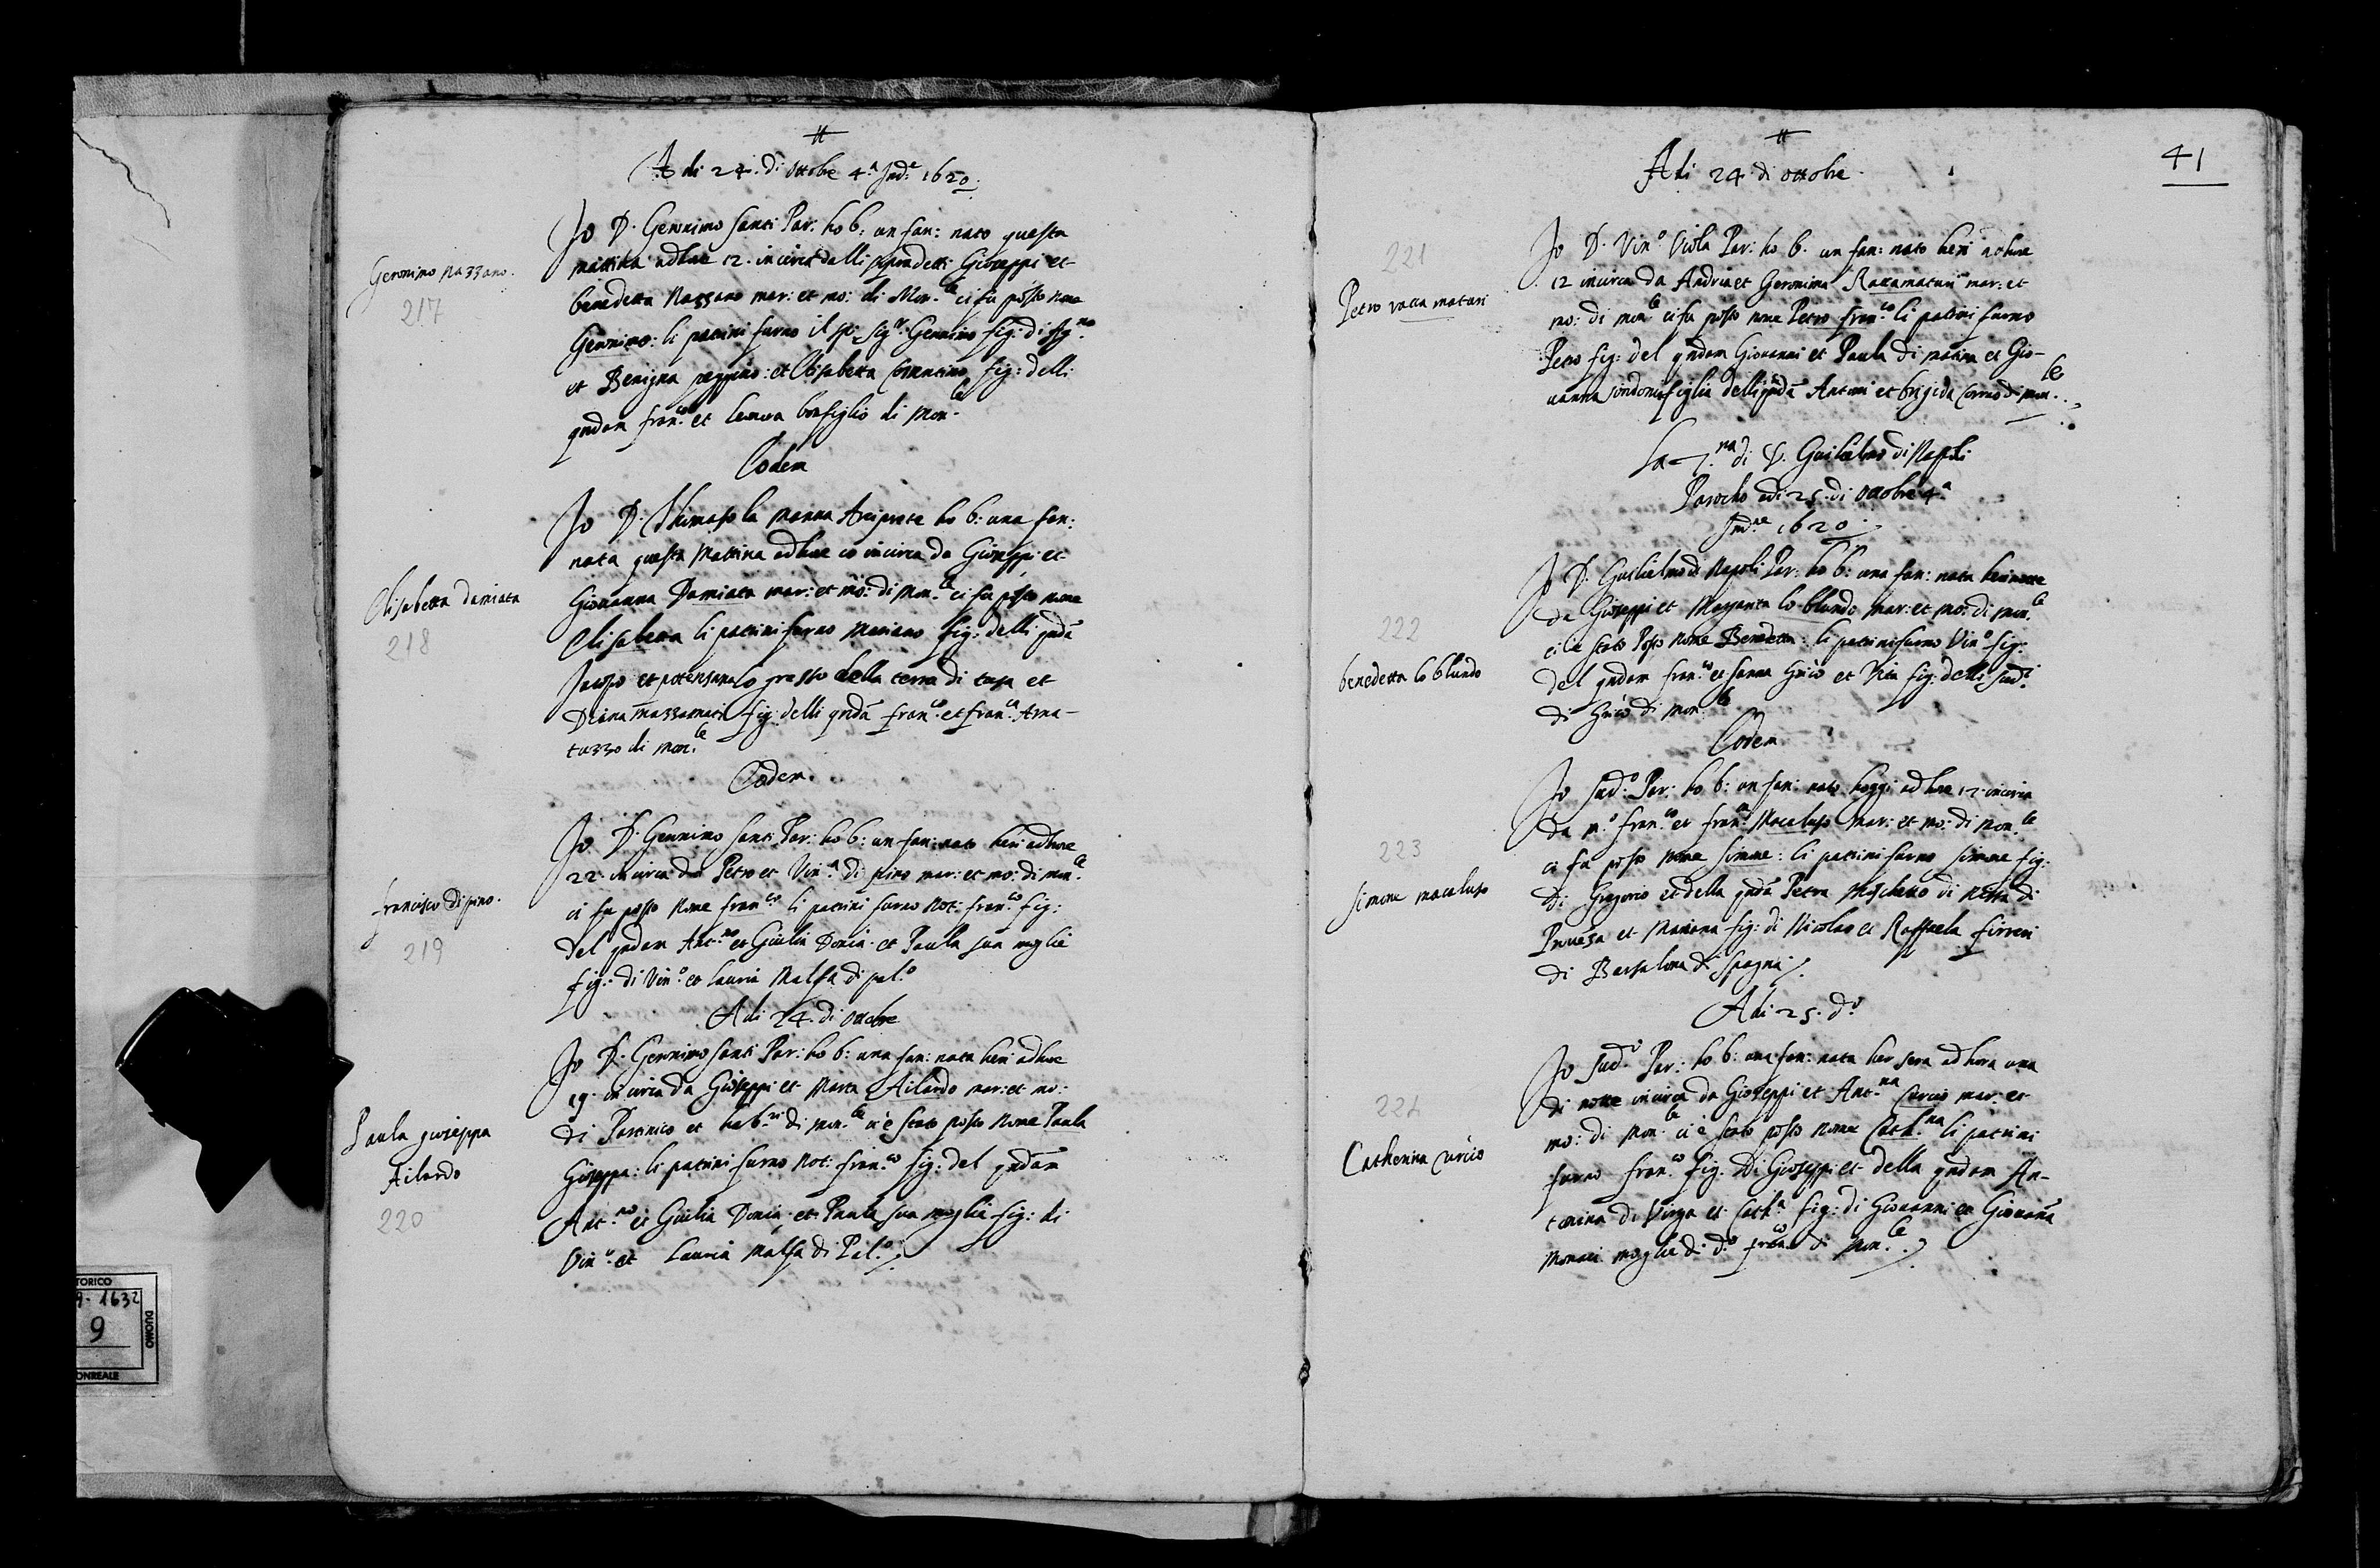 A di 24. di ottobre 4.ª Ind.e 1620.
Geronimo nazzano.
217
Io D. Geronimo Santi Par: ho b: un fan: nato questa
mattina ad hore 12. in circa delli Gioseppi et
benedetta Nazzano mar: et mo: di Mon.le ci fu posto nome
Geronimo: li patrini furno il sp. sig.r Geronimo fig: di
et Benigna et Elisabetta fig: delli
qndam fran.co et bonfiglio di Mon.le
Eodem
Elisabetta damiata
218
Io D. Thomaso la manna Arciprete ho b: una fan:
nata questa mattina ad hore 10 in circa da Gioseppi et
Giovanna Damiata mar: et mo: di Mon.le ci fu posto nome
Elisabetta li patrini furno Mariano fig: delli qndā
Jacopo et lo grasso della terra di tusa et
Diana mazzamati fig: delli qndā fran.co et fran.ca Ama-
tuzzo di mon.le
Eodem.
francisco di pino.
219
Io D. Geronimo Santi Par: ho b: un fan: nato heri ad hore
22. in circa da Petro et Vin.ª di pino mar: et mo: di mon.le
ci fu posto nome fran.co li patrini furno Not: fran.co fig:
del qndam Ant.no et Giulia Donia et Paula sua moglie
fig: di Vin.o et Lauria Malfa di pal.o
A di 24. di ottobre
Paula gioseppa
Ailardo
220
Io D. Geronimo Santi Par: ho b: una fan: nata heri ad hore
19. in circa da Gioseppi et Marta Ailardo mar: et mo:
di Partinico et hab.ri di mon.le n'è stato posto nome Paula
Gioseppa: li patrini furno Not: fran.co fig: del qndam
Ant.no et Giulia Donia et Paula sua moglie fig: di
Vin.o et Lauria Malfa di Pal.o
41
A di 24 di ottobre.
221
Petro racca maturi
Io D. Vin.o Viola Par: ho b. un fan: nato heri ad hore
12 in circa da Andria et Geronima Raccamaturi mar: et
mo: di mon.le ci fu posto nome Petro fran.co li patrini furno
Petro fig: del qndam Giovanni et Paula di matina et Gio-
vanna figlia delli qndā Antoni et brigida di mon.le
di D. Guilielmo di Napoli
Parocho a di 25. di ottobre 4.ª
Ind.ne 1620
222
benedetta lo blundo
Io D. Guilielmo di Napoli Par: ho b: una fan: nata heri notte
da Gioseppi et Margarita lo blundo mar: et mo: di mon.le
ci è stato posto nome Benedetta: li patrini furno Vin.o fig:
del qndam fran.co et Janna Gricò et Vita fig: delli sud.i
di Gricò di mon.le
Eodem
223
Simone macaluso
Io sud.o Par: ho b: un fan: nato hoggi ad hore 12. in circa
da m.o fran.co et fran.ca Macaluso mar: et mo: di mon.le
ci fu posto nome Simone: li patrini furno Simone fig:
di Gregorio et della qndā Petra Moschetto di di
et Mariana fig: di Nicolao et Raffaela firreri
di Barsalona di Spagna
A di 25. d.o
224
Catherina Curcio
Io sud.o Par: ho b: una fan: nata her sera ad hora una
di notte in circa da Gioseppi et Ant.na Curcio mar. et
mo: di mon.le ci è stato posto nome Cath.na li patrini
furno fran.co fig. di Gioseppi et della qndam An-
tonina di Virga et Cath.a fig: di Giovanni et Giovannā
Monaci moglie di d.o fran.co di mon.le
TORICO
9-1632
9
DUOMO
ONREALE